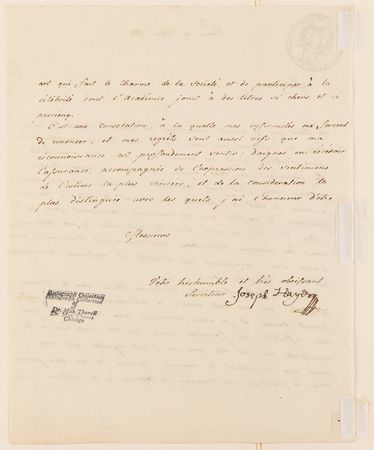 art qui, fait le charme de la Societé, et de participer à la
célébrité dont l'Académie jouit à des titres si chers et si
precieux.
C'est une consolation, à la quelle mes infirmités me forcent
de renoncer, et mes regrets sont aussi vifs que ma
reconnoissance, est profondement sentie; daignez en recevoir
l'assurance, accompagnée de l'expression des sentimens
de l'estime la plus sincere, et de la consideration la
plus distinguée, avec des quels, j'ai l'honneur d'être
Messieurs
Votre très humble et très obeissant
Serviteur Joseph Haydn
Autograph Collection
of
Max Thorek
Chicago